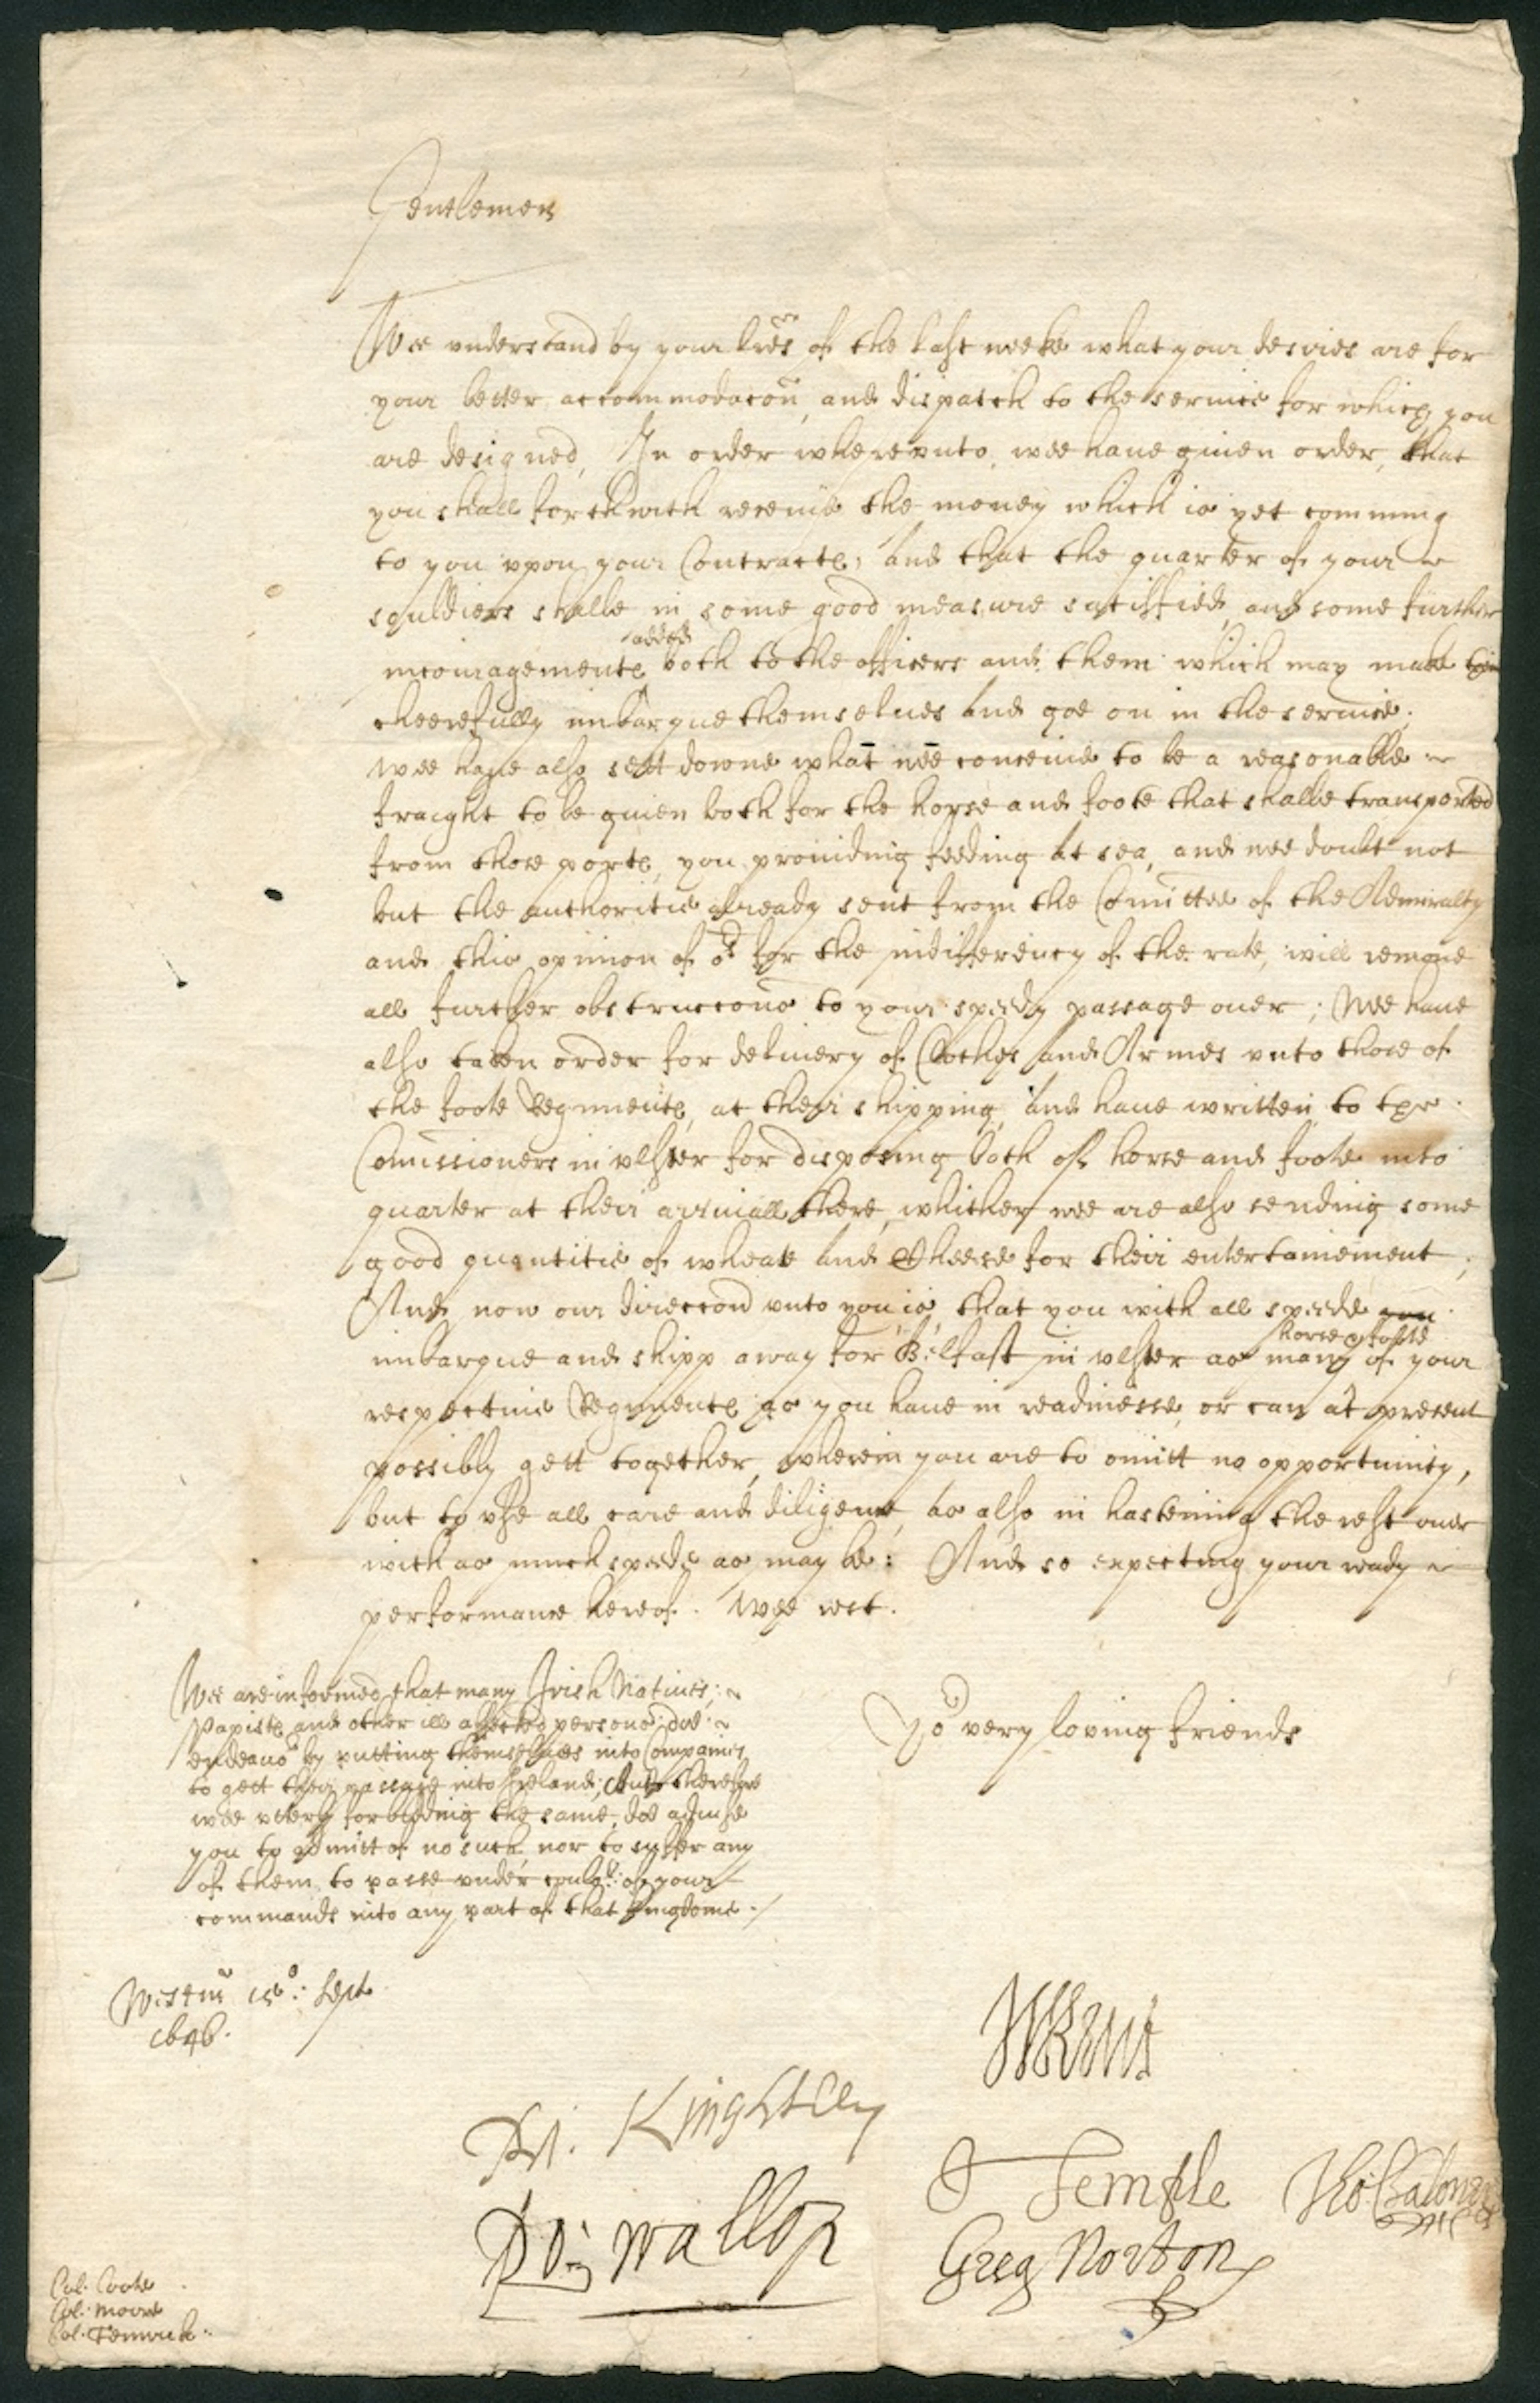 Gentlemen
Wee vnderstand by your lres of the last weeke what your desires are for
your better accommodacon, and dispatch to the seruice for which you
are designed, In order wherevnto, wee haue giuen order, that
you shall forthwith receiue the money which is yet comming
to you vpon your Contracte, And that the quarter of your
souldiers shalbe in some good measure satisfied, and some further
incouragemente added both to the officers and them which may make
cheerefully imbarque themselues And goe on in the seruice;
wee haue also sett downe what wee conceiue to be a reasonable
fraight to be giuen both for the horse and foote that shalbe transported
from those porte, you prouiding feeding at sea, and wee doubt not
but the authoritie already sent from the Comittee of the Admiralty
and this opinion of os for the indifferency of the rate, will remoue
all further obstruccons to your speedy passage ouer; Wee haue
also taken order for deliuery of Clothes And Armes vnto those of
the foote Regimente, at their shipping, And haue written to the
Comissioners in vlster for disposing both of horse and foote into
quarter at their arriuall there, whither wee are also sending some
good quantitie of wheate And Cheese for their entertainement;
And now our direccon vnto you is, that you with all speede you
imbarque and shipp away for Belfast in vlster as many horse & foote of your
respectiue Regimente as you haue in readinesse, or can at present
possibly gett together, wherein you are to omitt no opportunity,
but to vse all care and diligence, As also in hastening the rest ouer
with as much speede as may be: And so expecting your ready
performance hereof. Wee rest.
Yor very loving friends
Wee are informed that many Irish Natiues,
Papiste and other ill affected persons doe
endeauor by putting themselues into Companies
to gett their passage into Ireland; And therefore
wee vtterly forbidding the same, doe aduise
you to admitt of no such, nor to suffer any
of them to passe vnder of your
commands into any part of that kingdome.
Westmr 15o: Sept
1646.
Ri. Knightley
J Temple
Rob wallop
Greg Norton
Col. Coote
Col. Moore
Col. Fenwick.